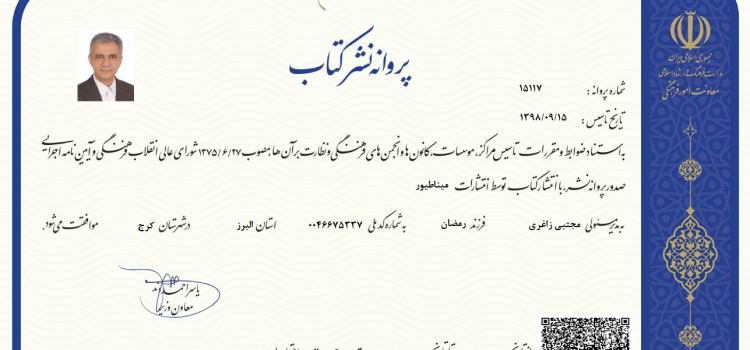 جمهوری اسلامی ایران
وزارت فرهنگ و ارشاد اسلامی
معاونت امور فرهنگی
پروانه نشر کتاب
شماره پروانه : ۱۵۱۱۷
تاریخ تاسیس : ۱۳۹۸/۰۹/۱۵
به استناد ضوابط و مقررات تاسیس مراکز، موسسات، کانون ها و انجمن های فرهنگی و نظارت بر آن ها مصوب ۱۳۷۵/۶/۲۷ شورای عالی انقلاب فرهنگی و آیین نامه اجرایی
صدور پروانه نشر، با انتشار کتاب توسط انتشارات میناطیور
به مدیر مسئولی مجتبی زاغری فرزند رمضان به شماره کد ملی ۰۰۴۶۶۷۵۳۳۷ استان البرز در شهرستان کرج موافقت می شود.
یاسر احمدوند
معاون وزیر